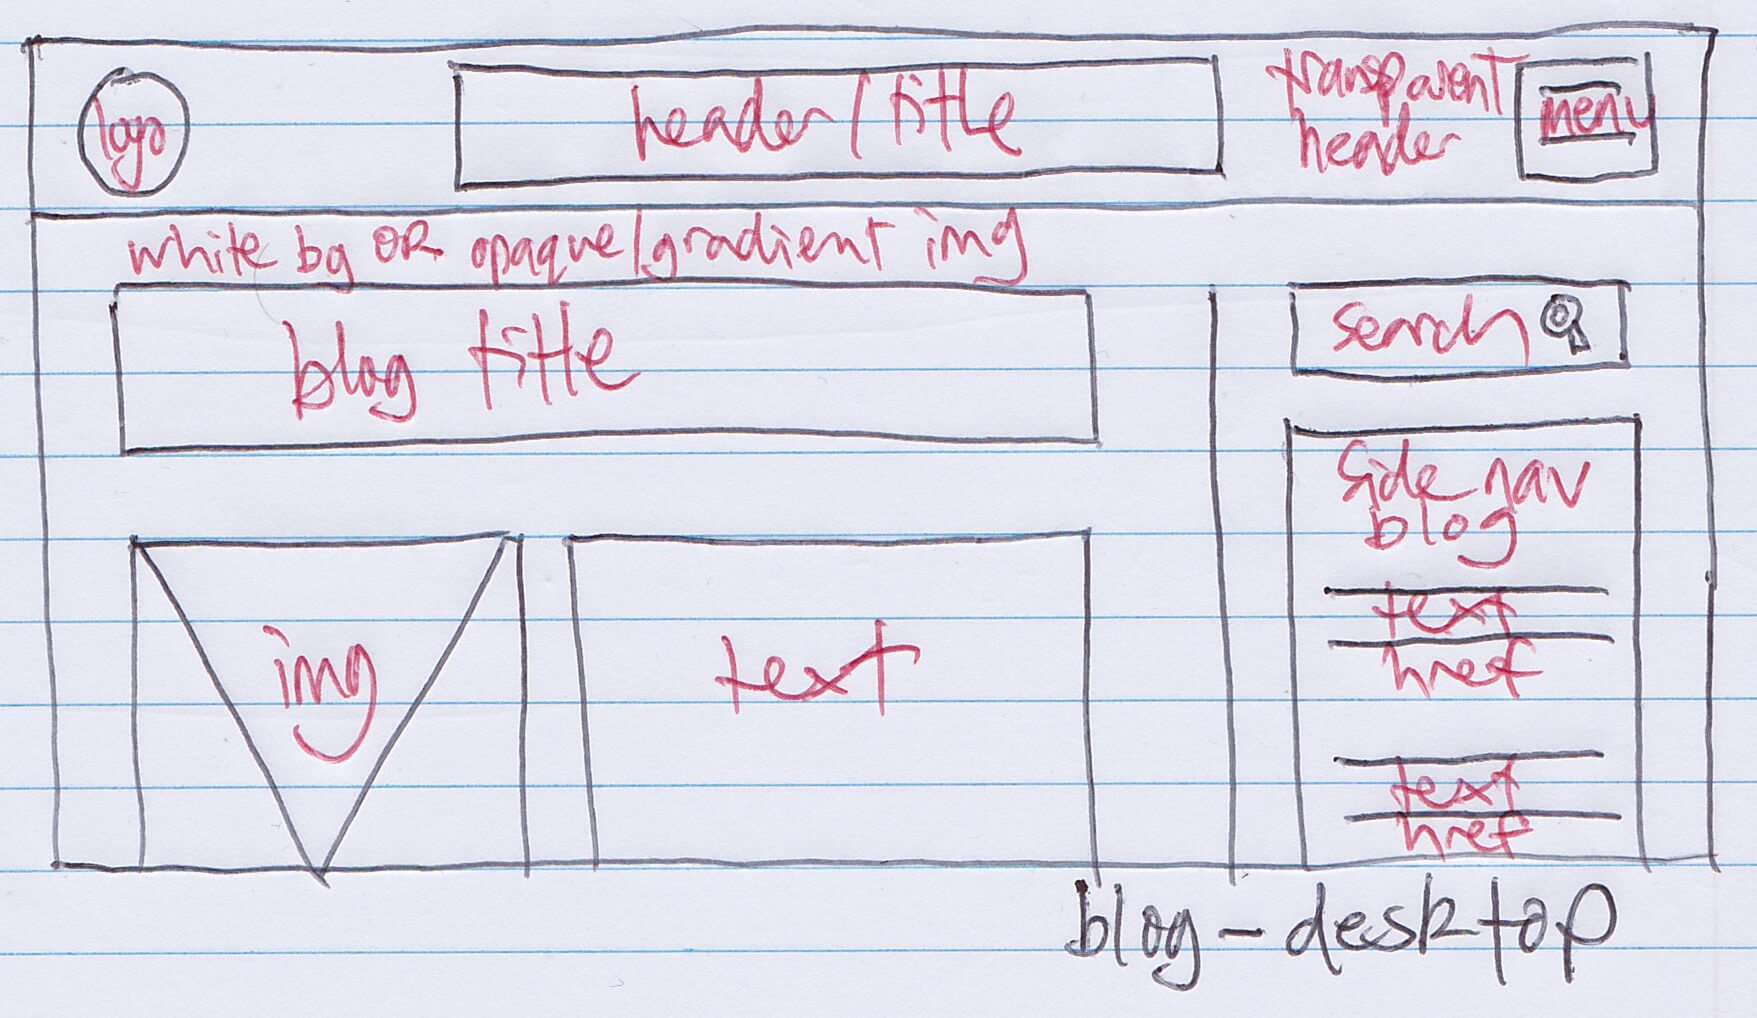 logo
header/title
transparent
header
menu
white bg OR opaque/gradient img
blog title
search
side nav
blog
img
text
text
href
text
href
blog-desktop